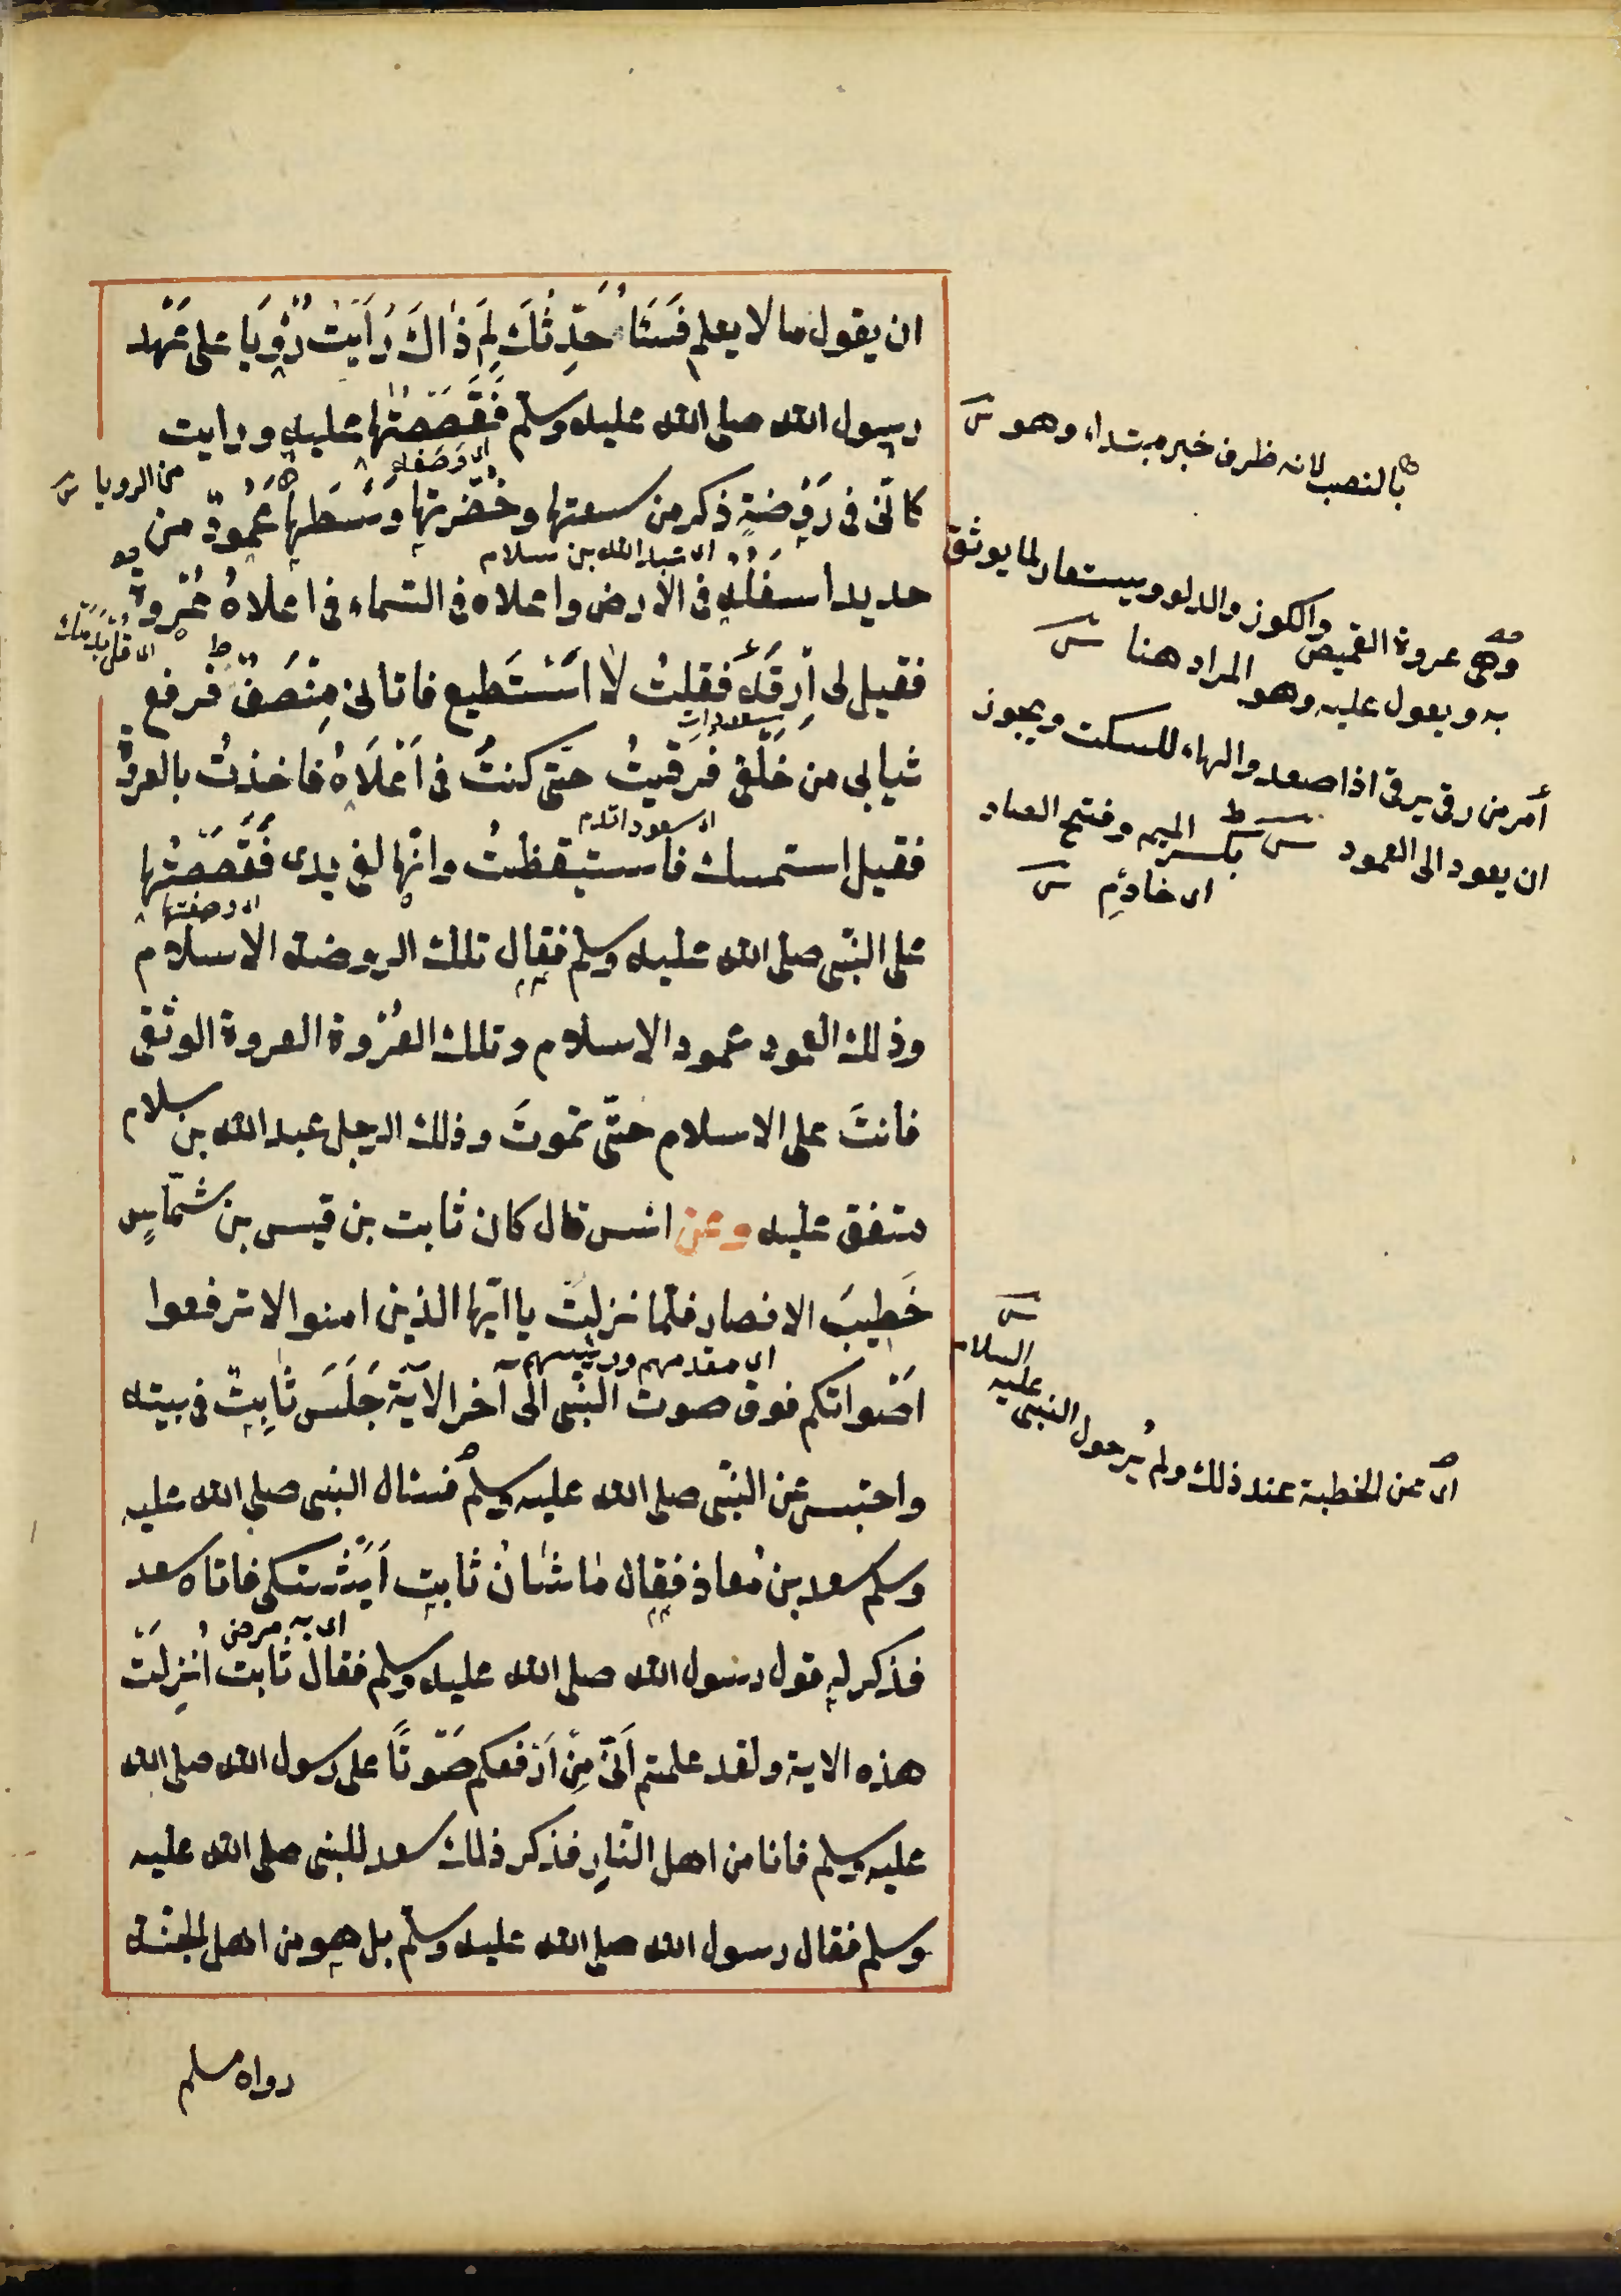 ان يقول ما لا يعلم فَسَاُحَدِّثُكَ لِمَ ذٰاكَ رَاَيْتُ رُؤْيَا على عَهْد
رسول الله صلى الله عليه وسلم فَقَصَصْتُها عليه ورايت
كانّى فى رَوْضَةٍ ذكر من سعتها وخُضْرتِها وَسَطَها عَمُودٌ من
حديد اسفلُه فى الارض واعلاه فى السّماء فى اعلاهُ عُرْوة
فقيل لى اِرْقَهْ فقلتُ لا اَسْتَطيع فاتانى مِنْصَفٌ فرفع
ثيابى من خَلْفى فرَقِيتُ حتّى كنتُ فى اَعْلَاهُ فاخذتُ بالعروة
فقيل استمسك فاستيقظتُ وانّها لفى يدى فَقَصَصْتُها
على النّبى صلى الله عليه وسلم فقال تلك الروضة الاسلام
وذلك العمود عمود الاسلام وتلك العُرْوة العروة الوثقى
فانتَ على الاسلام حتّى تموتَ وذلك الرجل عبد الله بن سلام
متفق عليه وعن انس قال كان ثابت بن قيس بن شمّاسٍ
خَطِيبَ الانصار فلمّا نزلت يا ايّها الذين امنوا لا ترفعوا
اَصْواتكم فوق صوت النّبى الى آخر الآية جَلَسَ ثابِتٌ فى بيته
واحتبس عن النّبى صلى الله عليه وسلم فسئال النبى صلى الله عليه
وسلم سعد بن مُعاذ فقال مٰا شَانُ ثابِتٍ اَيَشْتكى فاتاه سعد
فذكر له قول رسول الله صلى الله عليه وسلم فقال ثابت اُنْزِلَتْ
هذه الاية ولقد علمتم اَنّى مِنْ اَرْفعكم صَوْتًا على رسول الله صلى الله
عليه وسلم فانا من اهل النّارِ فذكر ذلك سعد للنبى صلى الله عليه
وسلم فقال رسول الله صلى الله عليه وسلم بل هو من اهل الجنة
رواه مسلم
من الرويا
اى عبد الله بن سلام
اى مقدمهم ورئيسهم
اى به مرض
بالنصب لانه ظرف خبر مبتداء وهو
وهى عروة القميص والكوز والدلو ويستعار لما يوثق
به ويعول عليه وهو المراد هنا
اَمر من رقى يرقى اذا صعد والهاء للسكت ويجوز
ان يعود الى العمود
بكسر الميم وفتح الصاد
اى خادم
اى عن الخطبة عند ذلك ولم يُر حول النبى عليه السلام